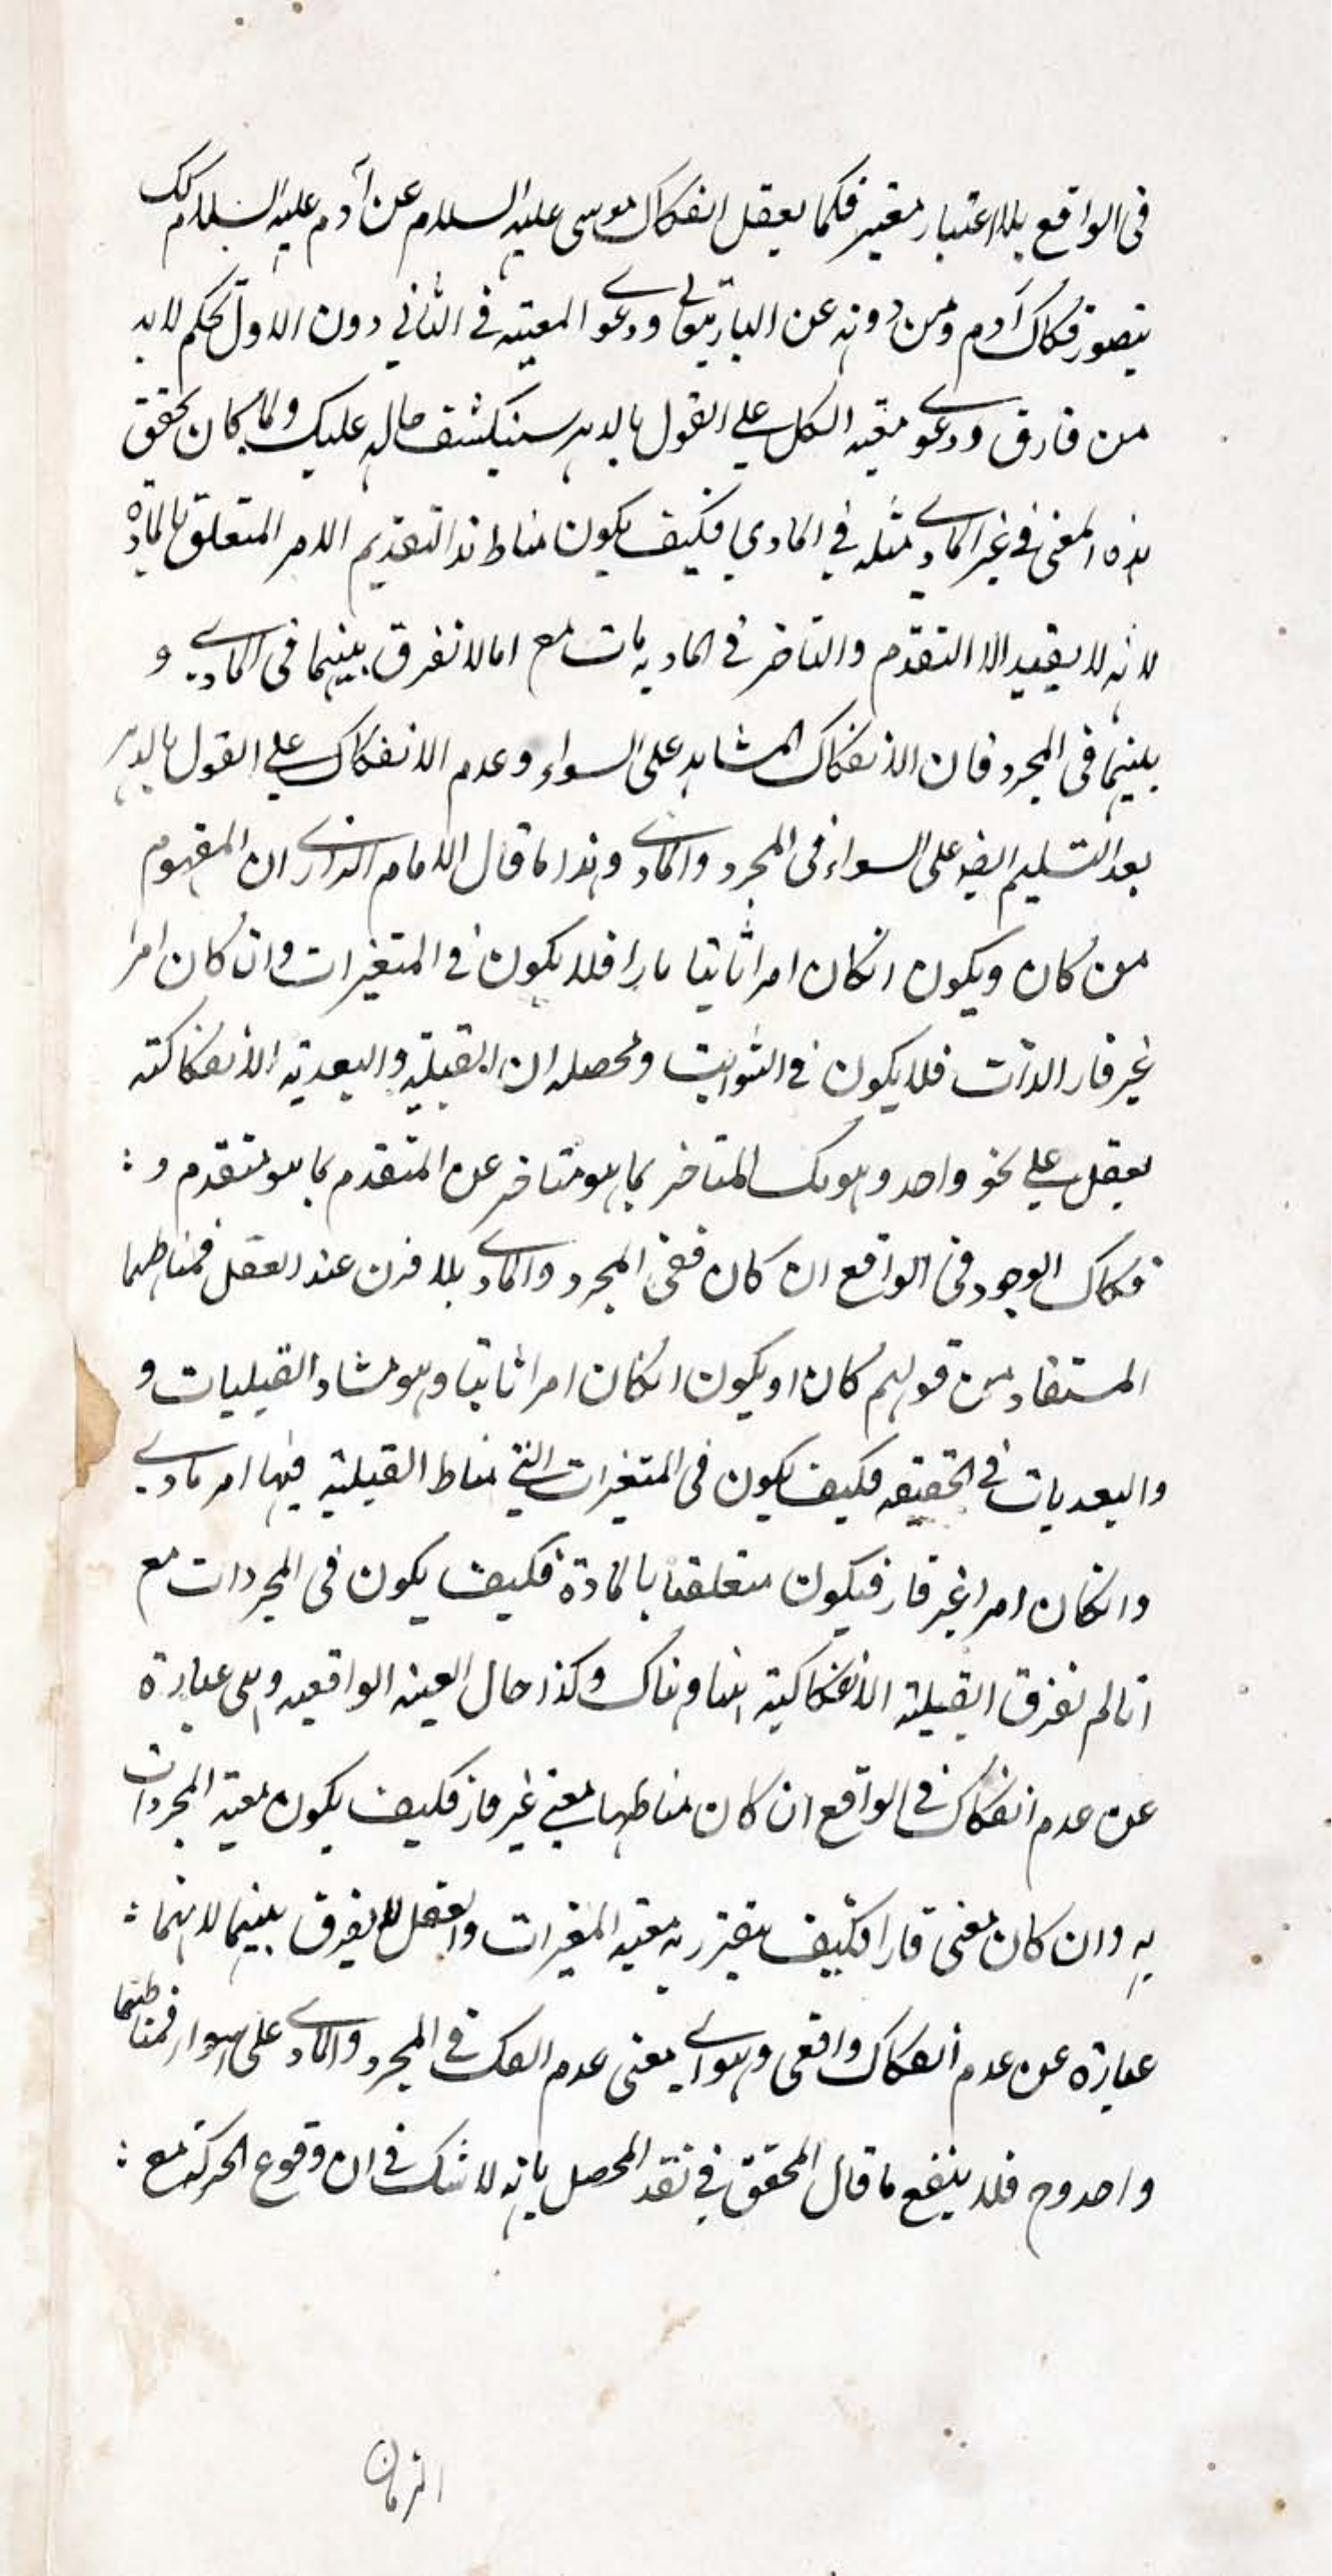 فى الواقع بلا اعتبار متغير فكما يعقل انفكاك موسى عليه السلام عن آدم عليه السلام كك
يتصور فكاك آدم ومن دونه عن البارى تعالى ودعوے المعية فى الثانى دون الاول تحكم لا بد
من فارق ودعوے معية الكل على القول بالدهر سينكشف حاله عليك ولما كان تحقق
هذه المعنى فى غير المادے مثله فى المادي فكيف يكون مناط هذا التقديم الامر المتعلق بالمادة
لانه لا يفيد الا التقدم والتاخر فى الماديات مع انا لا نفرق بينهما فى المادے و
بينهما فى المجرد فان الانفكاك المشاهد على السواء وعدم الانفكاك على القول بالدهر
بعد التسليم ايضا على السواء فى المجرد والمادے وهذا ما قال الامام الرازے ان المفهوم
من كان ويكون انكان امرا ثابتا قارا فلا يكون فى المتغيرات وان كان امرا
غير قار الذات فلا يكون فى الثوابت ومحصله ان القبلية والبعدية الانفكاكية
يعقل على نحو واحد وهو فك المتاخر بما هو متاخر عن المتقدم بما هو متقدم و :
فكاك الوجود فى الواقع ان كان ففى المجرد والمادے بلا فرق عند العقل فمناطهما
المستفاد من قولهم كان او يكون انكان امرا ثابتا وهو منشاء القبليات و
والبعديات فى الحقيقه فكيف يكون فى المتغيرات التى مناط القبلية فيها امر مادے
وانكان امرا غير قار فيكون متعلقا بالمادة فكيف يكون فى المجردات مع
انا لم نفرق القبلية الانفكاكية هنا وهناك وكذا حال المعية الواقعيه وهى عبارة
عن عدم انفكاك فى الواقع ان كان مناطها معنى غير قار فكيف يكون معية المجردات
به وان كان معنى قارا فكيف يتقرر به معية المتغيرات والعقل لا يفرق بينهما لانهما :
عبارة عن عدم انفكاك واقعى وهو اے معنى عدم الفك فى المجرد والمادے على السواء فمناطهما
واحد وح فلا ينفع ما قال المحقق فى نقد المحصل بانه لا شك فى ان وقوع الحركة مع :
الزمان